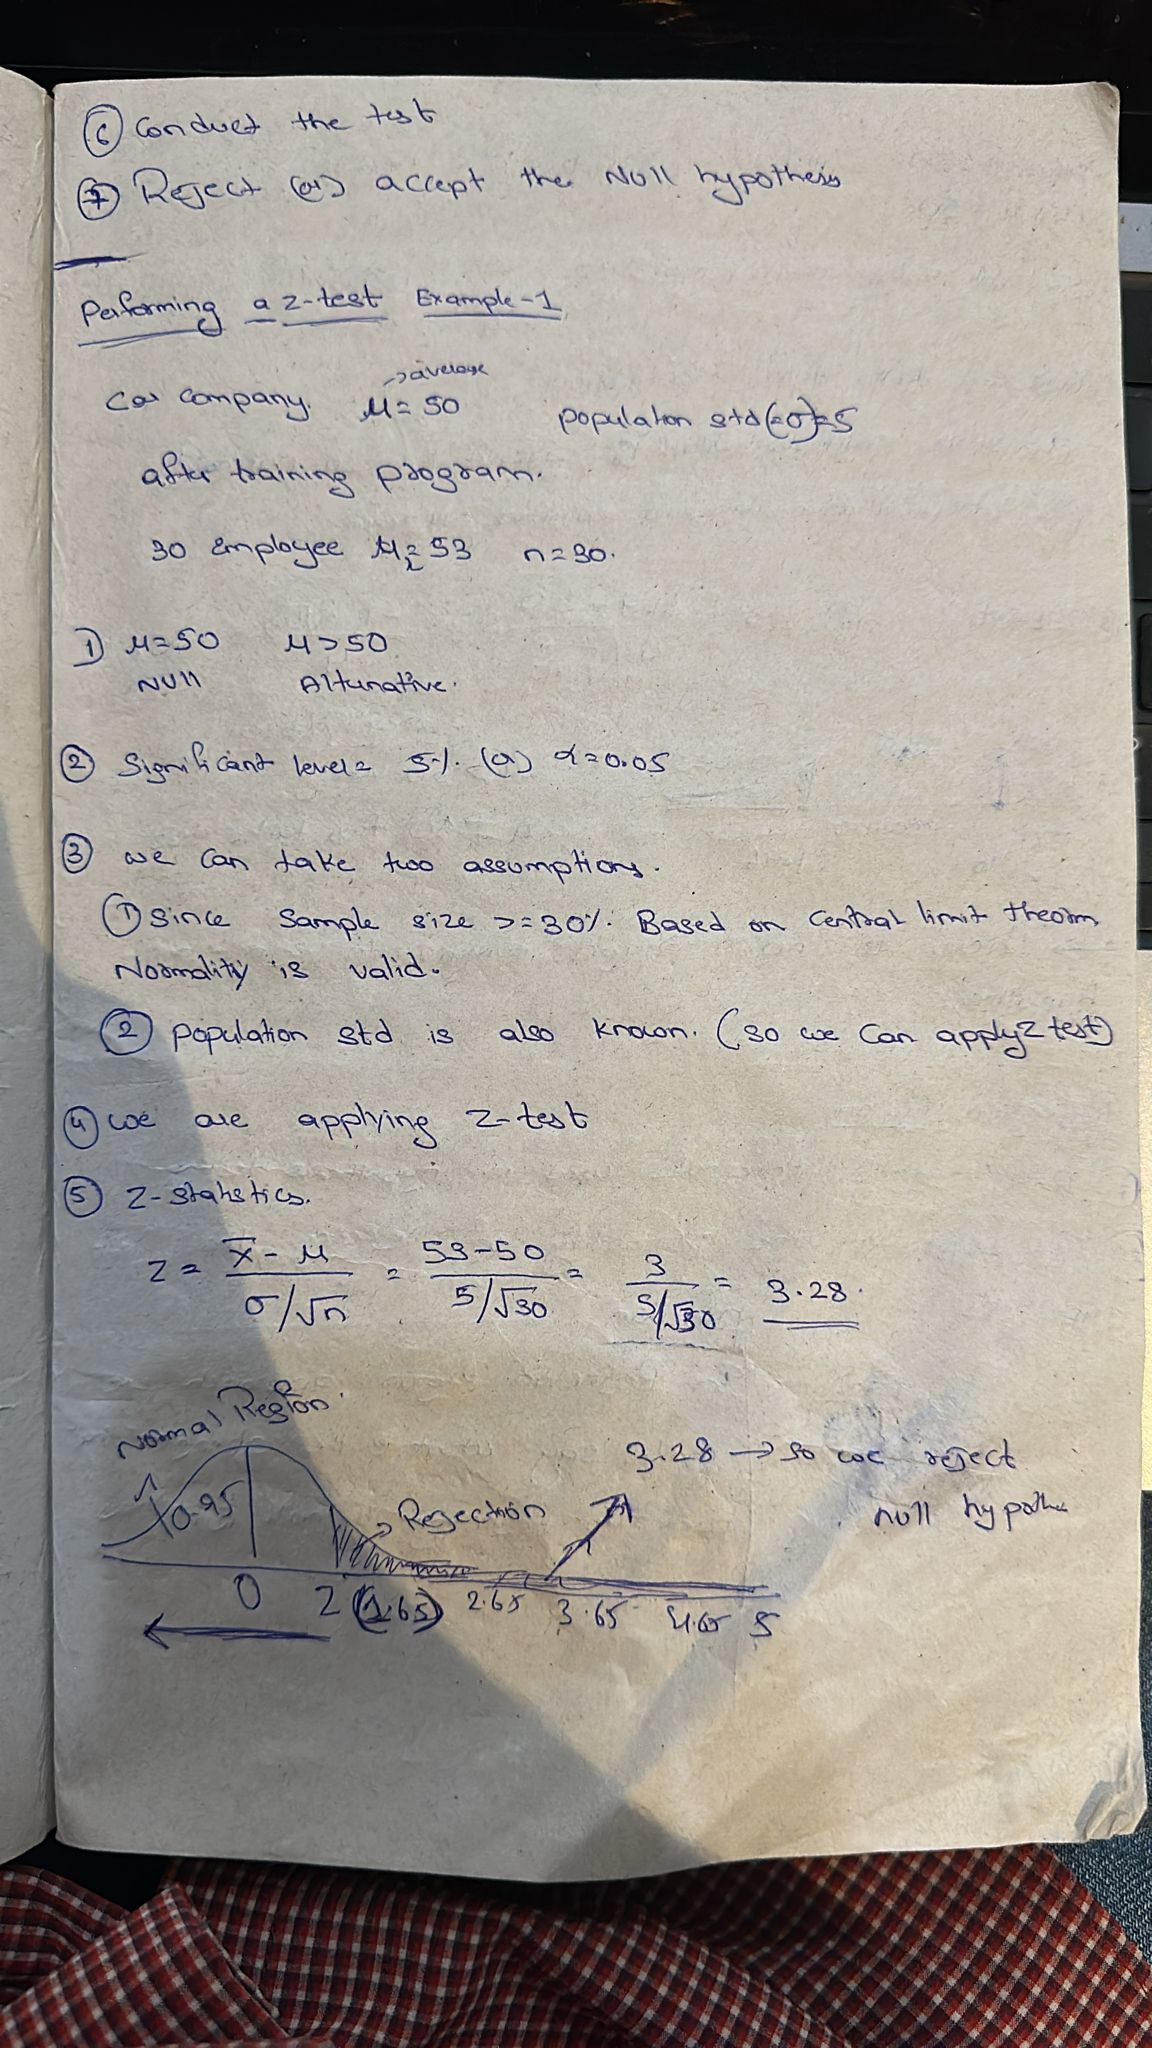 6 Conduct the test
7 Reject (or) accept the Null hypothesis
Performing a z-test Example-1
→ average
Car Company. μ = 50 population std(=σ)=5
after training program.
30 Employee μ₂ = 53 n = 30.
1) μ = 50 μ > 50
Null Alternative.
2 Significant level = 5%. (or) α = 0.05
3 we can take two assumptions.
1 Since Sample size >= 30%. Based on central limit theorm
Normality is valid.
2 population std is also known. (so we can apply z test)
4 we are applying z-test
5 z-statistics.
z = x̄ - μ / σ/√n = 53-50 / 5/√30 = 3 / 5/√30 = 3.28.
Normal Region.
0.95
Rejection
3.28 → so we reject
null hypothe
0 z (1.65) 2.65 3.65 4.65 5